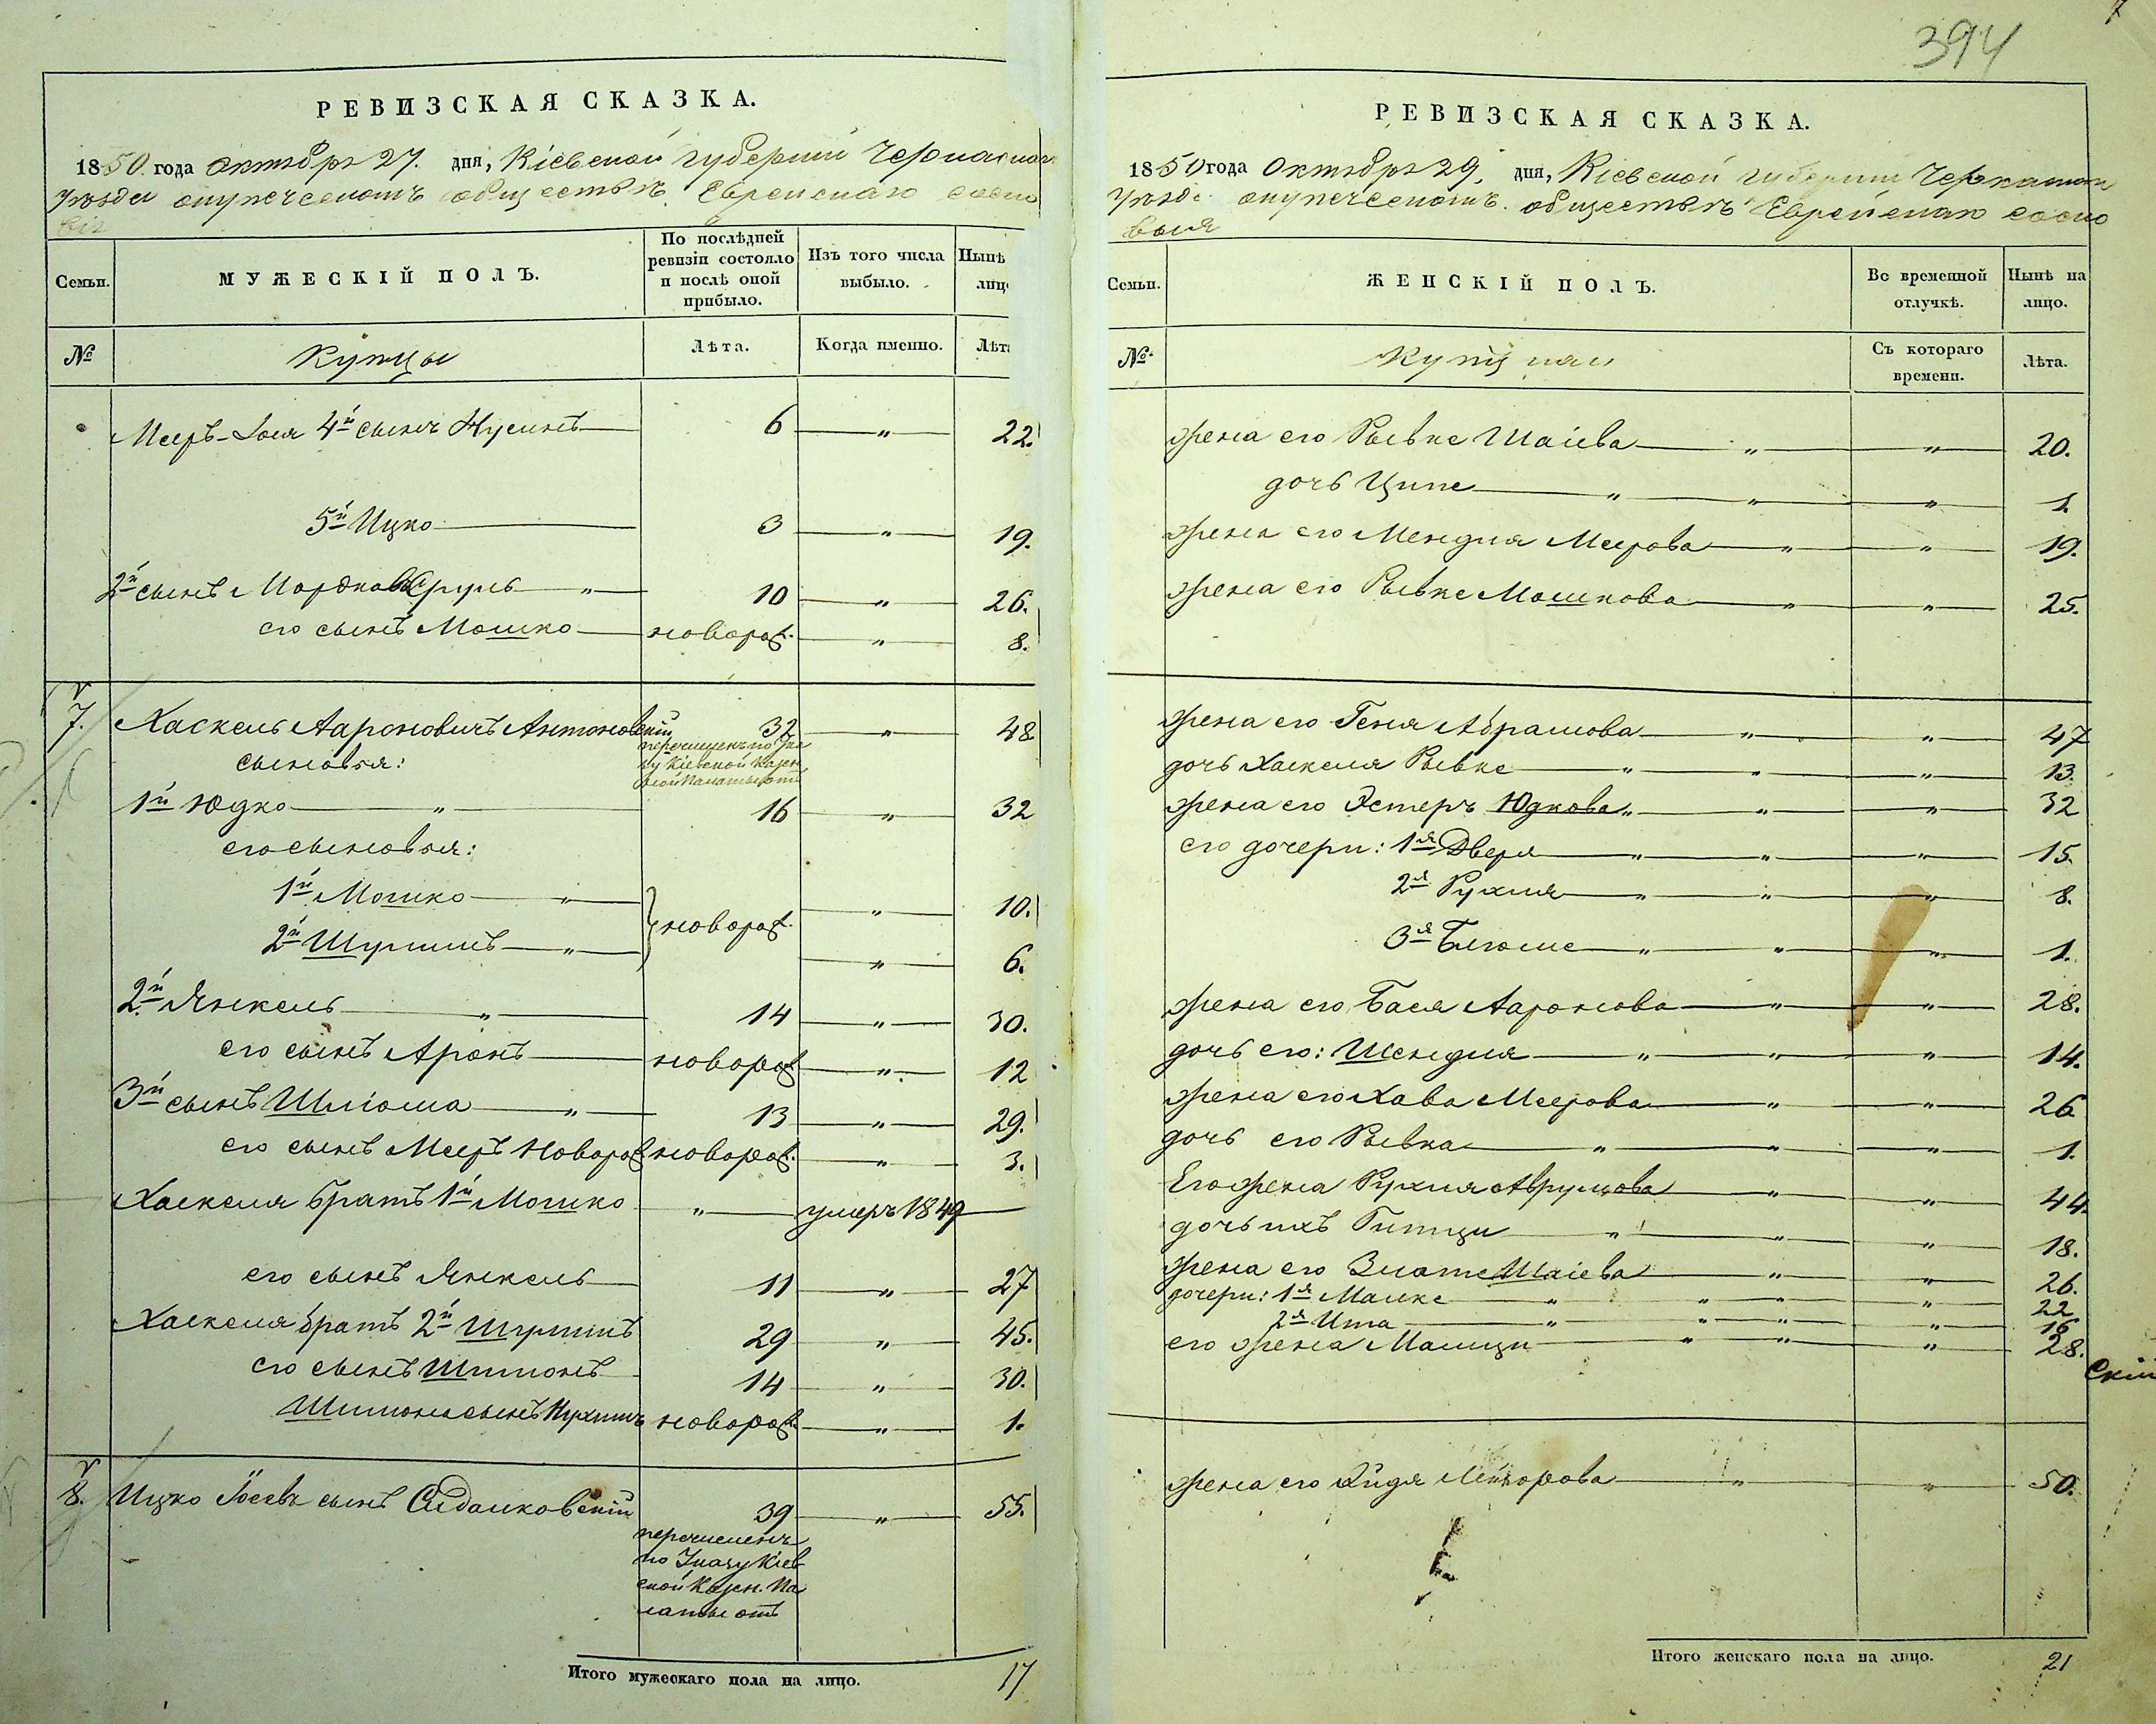 394
РЕВИЗСКАЯ СКАЗКА.
1850 года октября 27. дня, Кіевской губерніи Черкаскаго
уѣзда о купеческомъ обществѣ Еврейскаго сосло
вія
Семьи.
МУЖЕСКІЙ ПОЛЪ.
По послѣдней
ревизіи состояло
и послѣ оной
прибыло.
Изъ того числа
выбыло.
Нынѣ
лицо
№
Купцы
Лѣта.
Когда именно.
Лѣта
Мееръ-Іося 4й сынъ Нусинъ 6 " 22.
5й Ицко 3 " 19.
2й сынъ Мордковъ Сруль " 10 " 26.
его сынъ Мошко новорож. " 8.
7. Хаскель Аароновичъ Антоновскій 32 " 48
перечисленъ по Ука
зу Кіевской Казен
ной Палаты отъ
сыновья:
1й Юдко " 16 " 32
его сыновья:
1й Мошко " новорож. " 10.
2й Шулимъ " " 6.
2й Янкель " 14 " 30.
его сынъ Аронъ новорож " 12
3й сынъ Шліома " 13 " 29.
его сынъ Меер Новорож новорож. " 3.
Хаскеля братъ 1й Мошко " умеръ 1849
его сынъ Янкель 11 " 27
Хаскеля братъ 2й Шулимъ 29 " 45.
его сынъ Шимонъ 14 " 30.
Шимона сынъ Нухимъ новорож " 1.
8. Ицко Іосевъ сынъ Сидалковскій 39 " 55.
перечисленъ
по Указу Кіев
ской Казен. Па
латы отъ
Итого мужескаго пола на лицо. 17
РЕВИЗСКАЯ СКАЗКА.
1850 года Октября 29, дня, Кіевской губерніи Черкаскаго
уѣзда о купеческомъ обществѣ Еврейскаго сосло
вія
Семьи.
ЖЕНСКІЙ ПОЛЪ.
Во временной
отлучкѣ.
Нынѣ на
лицо.
№
Купчихи
Съ котораго
времени.
Лѣта.
жена его Рывке Шаіева " " 20.
дочь Ципе " " " 1.
жена его Мендля Меерова " " 19.
жена его Рывке Мошкова " " 25.
жена его Геня Абрамова " " 47
дочь Хаскеля Рывке " " " 13.
жена его Эстеръ Юдкова " " " 32
его дочери: 1я Двера " " " 15.
2я Рухля " " " 8.
3я Блюме " " " 1.
жена его Бася Ааронова " " 28.
дочь его: Шендля " " " 14.
жена его Хава Меерова " " 26
дочь его Рывка " " " 1.
Его жена Рухля Аврумова " " 44.
дочь ихъ Гитци " " " 18.
жена его Злате Шаіева " " 26.
дочери: 1я Малке " " " " 22
2я Ита " " " " 16
его жена Малци " " " " 28.
скій
жена его Хидя Лейзорова " " 50.
Итого женскаго пола на лицо. 21